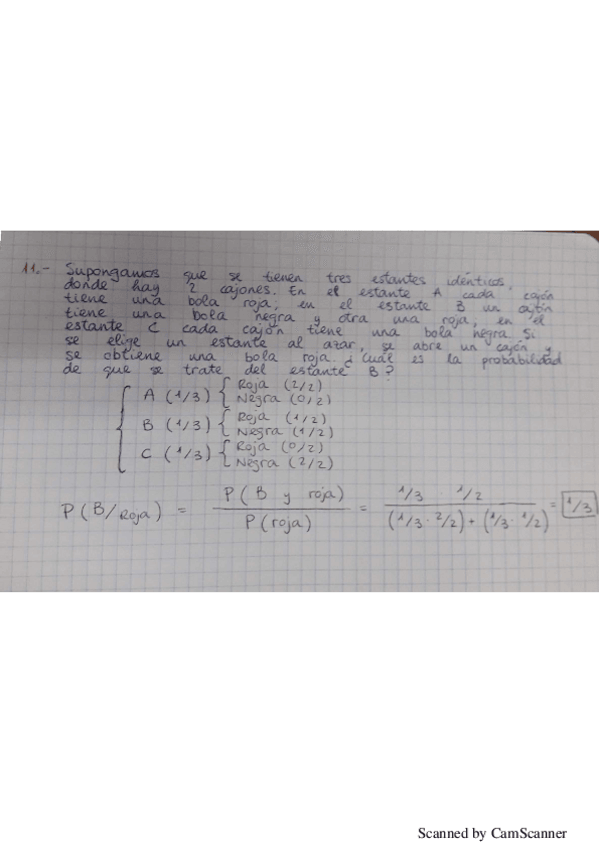 11.- Supongamos que se tienen tres estantes idénticos,
donde hay 2 cajones. En el estante A cada cajón
tiene una bola roja; en el estante B un cajón
tiene una bola negra y otra una roja, en el
estante C cada cajón tiene una bola negra. Si
se elige un estante al azar, se abre un cajón y
se obtiene una bola roja. ¿Cuál es la probabilidad
de que se trate del estante B?
A (1/3) { Roja (2/2)
Negra (0/2)
B (1/3) { Roja (1/2)
Negra (1/2)
C (1/3) { Roja (0/2)
Negra (2/2)
P(B/Roja) = P(B y roja) / P(roja) = 1/3 · 1/2 / (1/3 · 2/2) + (1/3 · 1/2) = 1/3
Scanned by CamScanner